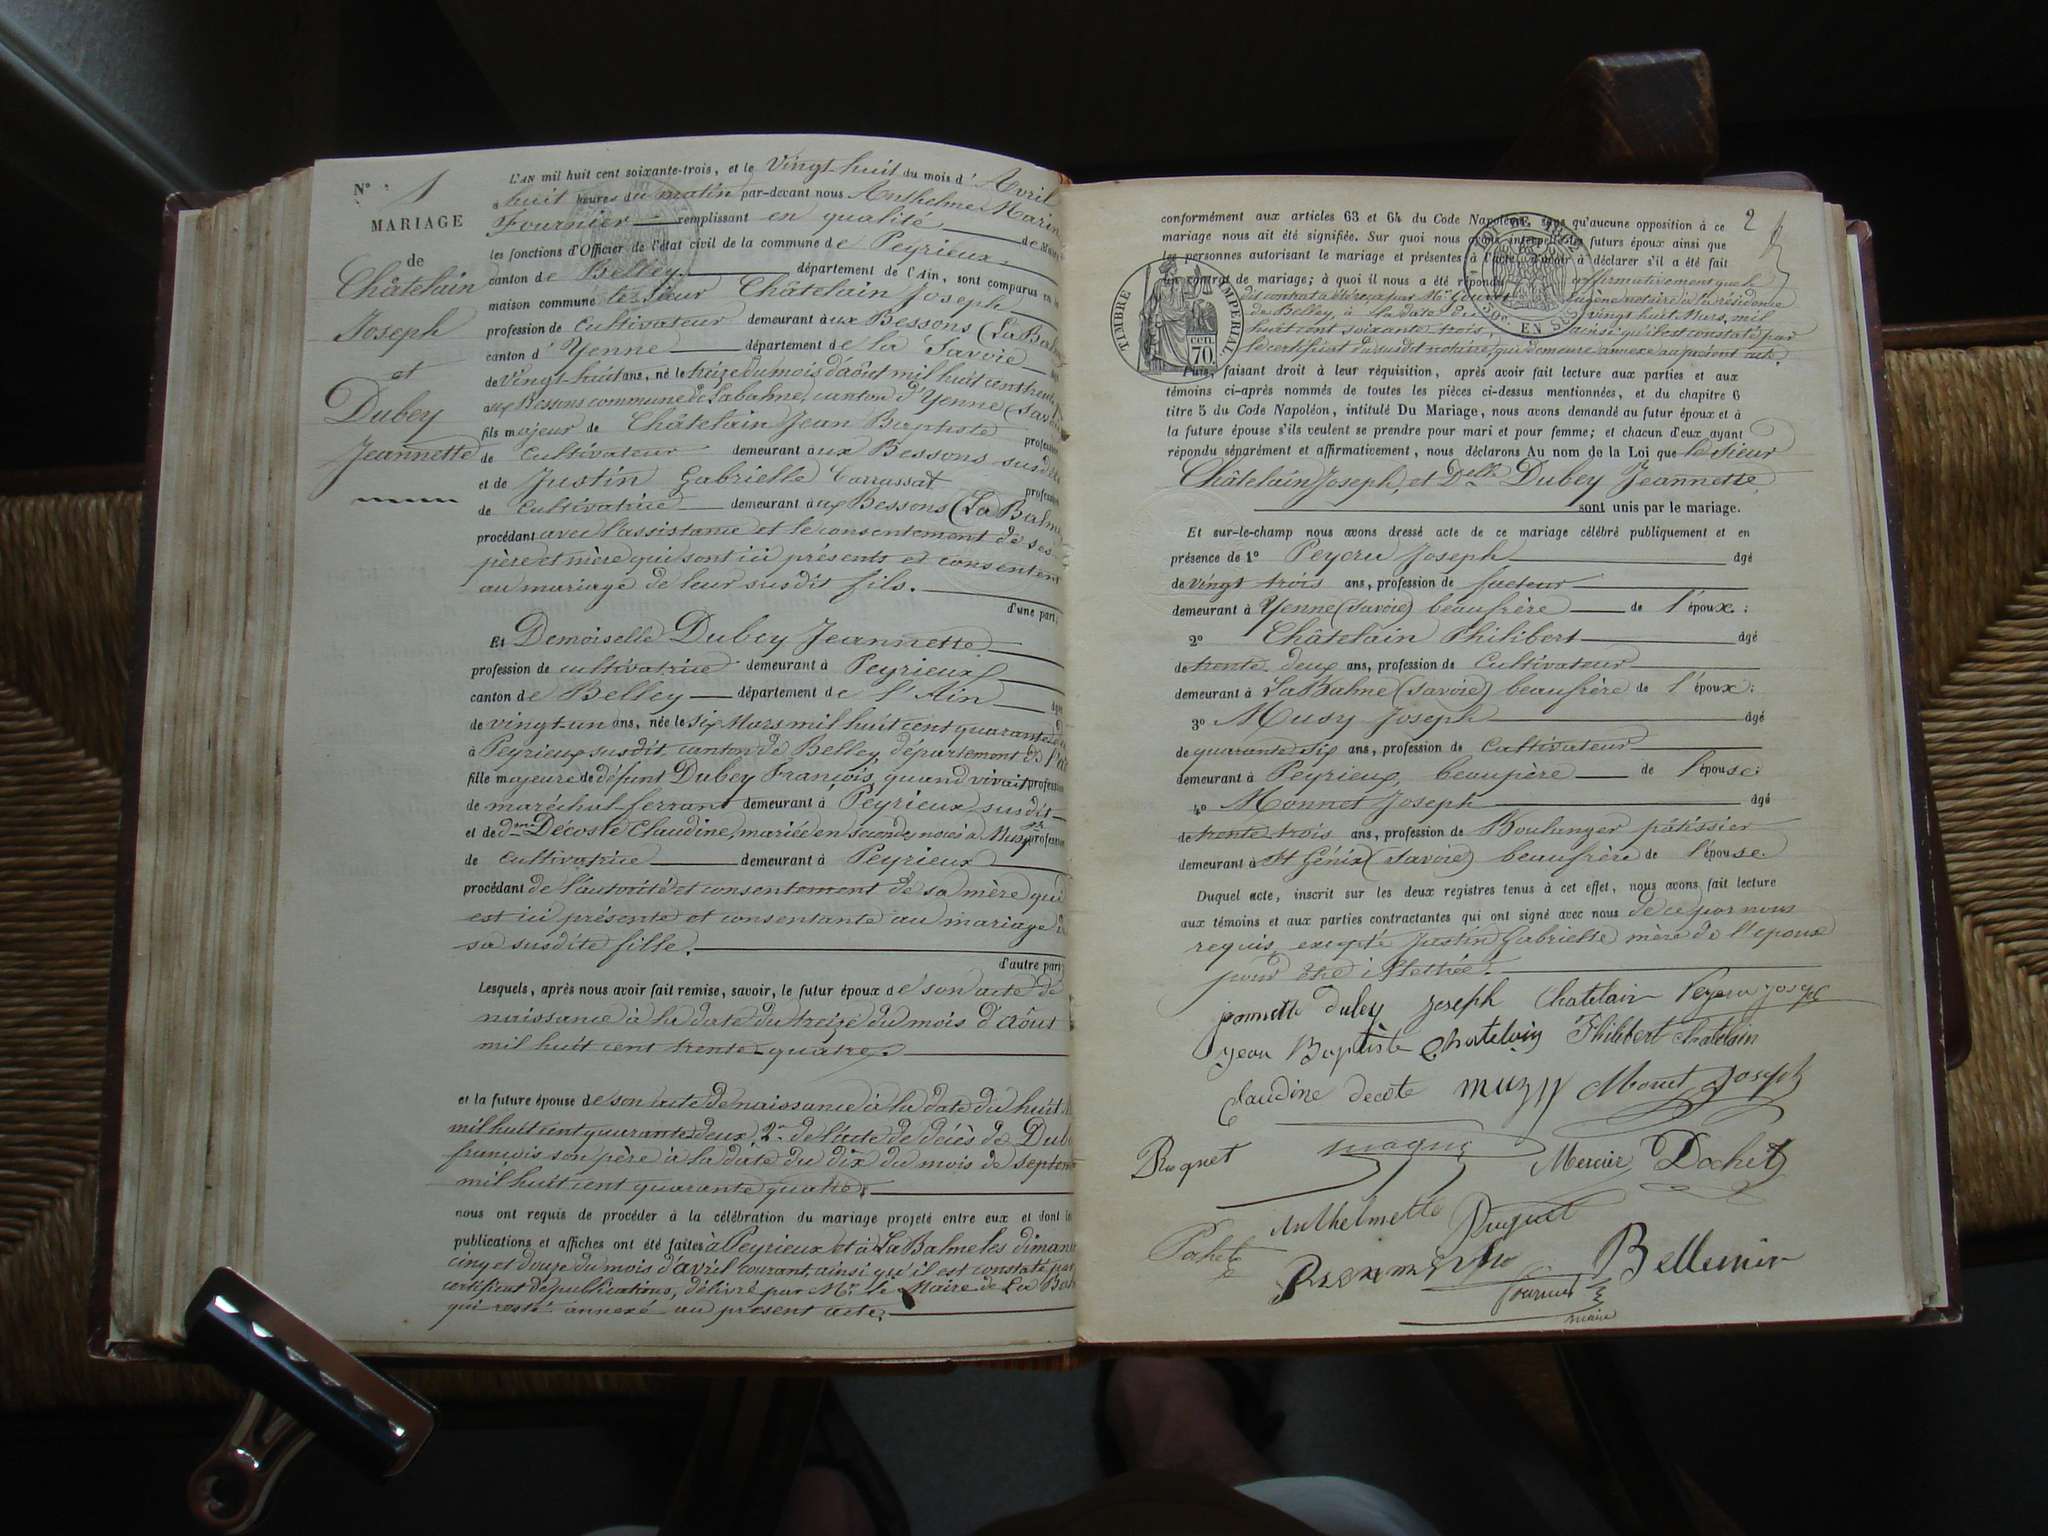 N° 1
MARIAGE
de
Châtelain
Joseph
et
Dubey
Jeannette
L'AN mil huit cent soixante-trois, et le Vingt-huit du mois d'Avril
à huit heures du matin par-devant nous Anthelme Marin
Fournier remplissant en qualité de Maire
les fonctions d'Officier de l'état civil de la commune de Peyrieux
canton de Belley département de l'Ain, sont comparus en la
maison commune le Sieur Châtelain Joseph
profession de Cultivateur demeurant aux Bessons (La Balme
canton d'Yenne département de la Savoie
de Vingt-huit ans, né le treize du mois d'août mil huit cent trente
aux Bessons commune de Labalme, canton d'Yenne (Savoie
fils majeur de Châtelain Jean Baptiste profession
de Cultivateur demeurant aux Bessons susdit
et de Justin Gabrielle profession
de Cultivatrice demeurant aux Bessons (La Balme
procédant avec l'assistance et le consentement de ses
père et mère qui sont ici présents et consentent
au mariage de leur susdit fils.
d'une part;
Et Demoiselle Dubey Jeannette
profession de cultivatrice demeurant à Peyrieux
canton de Belley département de l'Ain
de vingt-un ans, née le six Mars mil huit cent quarante
à Peyrieux susdit, canton de Belley, département de l'Ain
fille majeure de défunt Dubey François, quand vivait profession
de maréchal-ferrant demeurant à Peyrieux susdit
et de dme Décoste Claudine, mariée en secondes noces à Muzy profession
de Cultivatrice demeurant à Peyrieux
procédant de l'autorité et consentement de sa mère qui
est ici présente et consentante au mariage de
sa susdite fille.
d'autre part;
Lesquels, après nous avoir fait remise, savoir, le futur époux de son acte de
naissance à la date du treize du mois d'août
mil huit cent trente-quatre.
et la future épouse de son acte de naissance à la date du huit
mil huit cent quarante deux, 2° de l'acte de décès de Dubey
françois son père à la date du dix du mois de septembre
mil huit cent quarante quatre;
nous ont requis de procéder à la célébration du mariage projeté entre eux et dont les
publications et affiches ont été faites à Peyrieux et à La Balme les dimanches
cinq et douze du mois d'avril courant, ainsi qu'il est constaté par
certificat de publications, délivré par Mr le Maire de La Balme
qui reste annexé au présent acte;
2
conformément aux articles 63 et 64 du Code Napoléon, sans qu'aucune opposition à ce
mariage nous ait été signifiée. Sur quoi nous avons interpellé les futurs époux ainsi que
les personnes autorisant le mariage et présentes à l'acte, d'avoir à déclarer s'il a été fait
un contrat de mariage; à quoi il nous a été répondu affirmativement que le
dit contrat a été reçu par Me Eugène notaire à la résidence
de Belley, à la date du vingt huit Mars, mil
huit cent soixante trois, ainsi qu'il est constaté par
le certificat du susdit notaire, qui demeure annexé au présent acte.
TIMBRE IMPERIAL
cen.
70
50c EN SUS
Puis, faisant droit à leur réquisition, après avoir fait lecture aux parties et aux
témoins ci-après nommés de toutes les pièces ci-dessus mentionnées, et du chapitre 6
titre 5 du Code Napoléon, intitulé Du Mariage, nous avons demandé au futur époux et à
la future épouse s'ils veulent se prendre pour mari et pour femme; et chacun d'eux ayant
répondu séparément et affirmativement, nous déclarons Au nom de la Loi que le Sieur
Châtelain Joseph, et Delle Dubey Jeannette
sont unis par le mariage.
Et sur-le-champ nous avons dressé acte de ce mariage célébré publiquement et en
présence de 1° Peycru Joseph âgé
de Vingt trois ans, profession de facteur
demeurant à Yenne (Savoie) beaufrère de l'époux;
2° Châtelain Philibert âgé
de trente deux ans, profession de Cultivateur
demeurant à La Balme (Savoie) beaufrère de l'époux;
3° Musy Joseph âgé
de quarante six ans, profession de Cultivateur
demeurant à Peyrieux, beaupère de l'épouse;
4° Monnet Joseph âgé
de trente trois ans, profession de Boulanger pâtissier
demeurant à St Génix (Savoie) beaufrère de l'épouse.
Duquel acte, inscrit sur les deux registres tenus à cet effet, nous avons fait lecture
aux témoins et aux parties contractantes qui ont signé avec nous de ce par nous
requis, excepté Justin Gabrielle mère de l'époux
pour être illettrée.
jeannette dubey joseph Chatelain Peycru Joseph
jean Baptiste Chatelain Philibert chatelain
Claudine decote muzy Monet Joseph
Mercier Dochet
Anthelmette
Bellemin
Fournier
maire